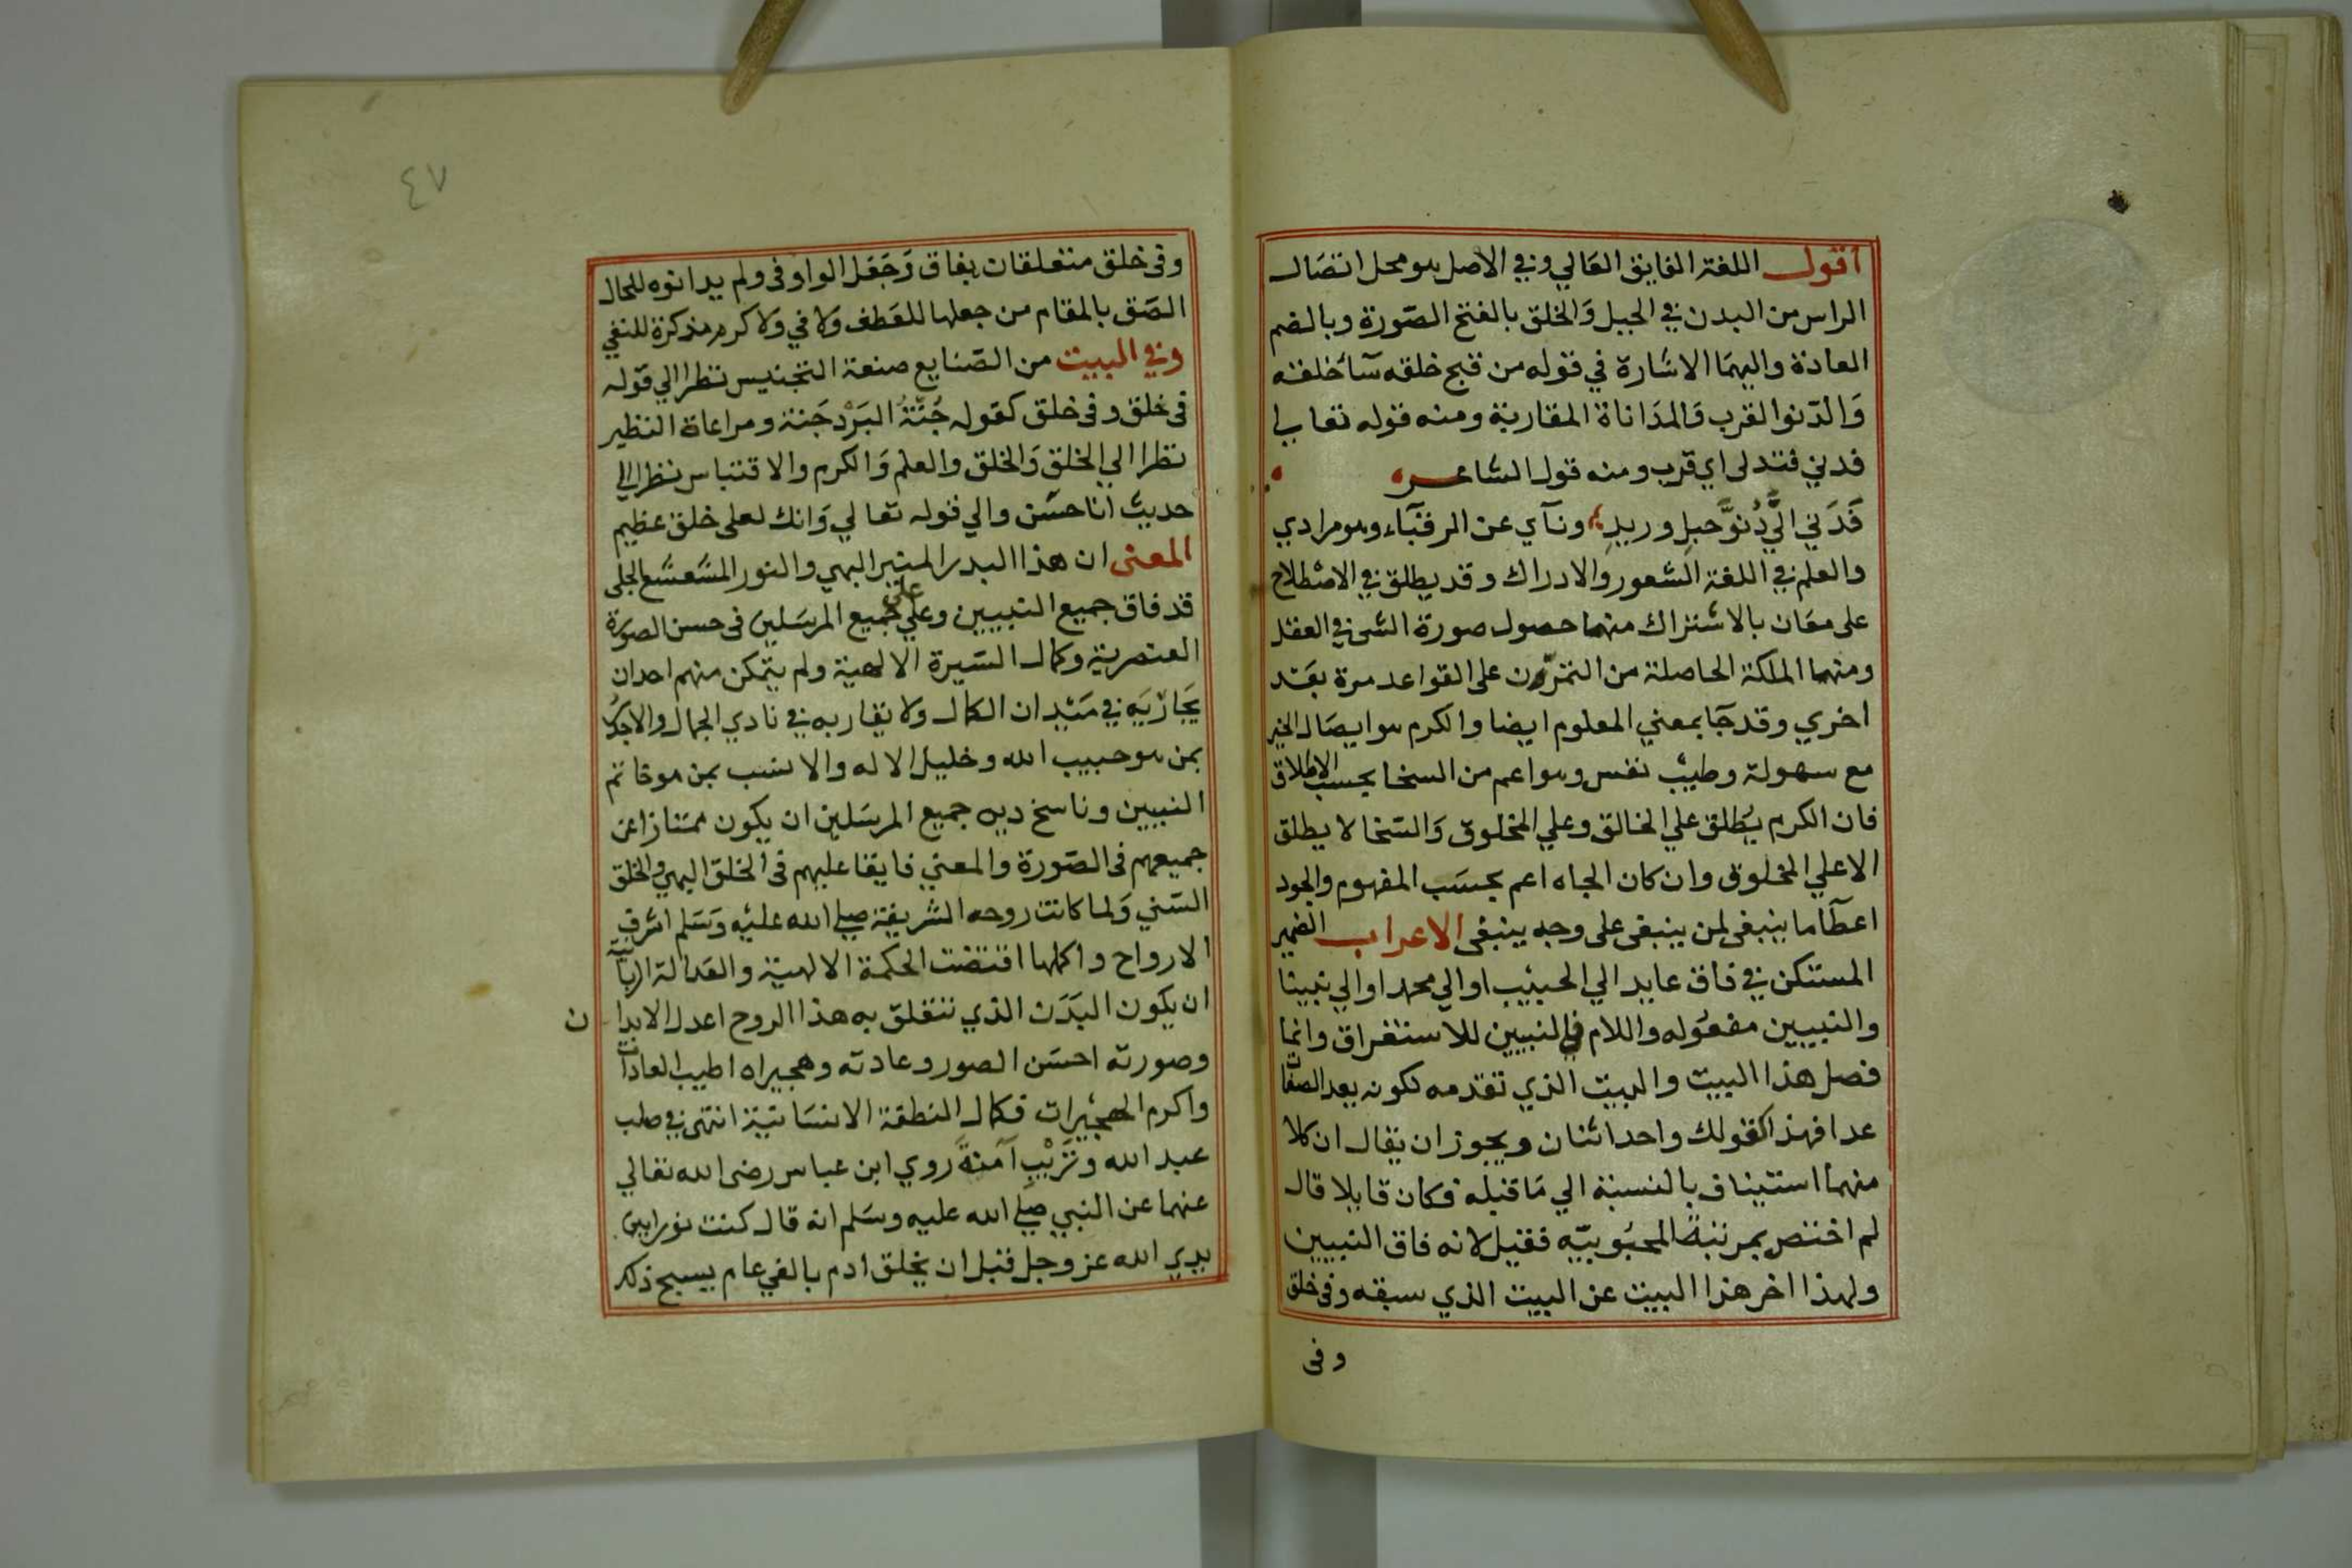 اقول اللغة الفايق العالي وفي الاصل هو محل اتصال
الراس من البدن في الجبل والخلق بالفتح الصورة وبالضم
العادة واليهما الاشارة في قوله من قبح خلقه سآ خلقه
وَالدّنوا القرب وَالمدَاناة المقاربة ومنه قوله تعالي
فدني فتدلى اي قرب ومنه قول الشاعر
فَدَني اليَّ دُنوَّ حبلِ وريدِ ونآي عن الرقبآء وهو مرادي
والعلم في اللغة الشعور والادراك وقد يطلق في الاصطلاح
على معَان بالاشتراك منهما حصول صورة الشى في العقل
ومنهما الملكة الحاصلة من التمرّن على القواعد مرة بعَد
اخري وقد جَا بمعني المعلوم ايضا والكرم هو ايصَال الخير
مع سهولة وطيب نفس وهو اعم من السخا بحسب الاطلاق
فان الكرم يُطلق علي الخالق وعلي المخلوق وَالسّخا لا يطلق
الا علي المخلوق وان كان الجاه اعم بحسَب المفهوم والجود
اعطآ ما ينبغى لمن ينبغى على وجه ينبغى الاعراب الضمير
المستكن في فاق عايد الي الحبيب او الي محمد او الي نبينا
والنبيين مفعُوله واللام في النبيين للاستغراق وانما
فصل هذا البيت والبيت الذي تقدمه لكونه بعد الصفا
عدا فهذا كقولك واحد اثنان ويجوز ان يقال ان كلا
منهما استيناف بالنسبة الي مَا قبله فكان قايلا قال
لم اختص بمرتبة المحبُوبيّه فقيل لانه فاق النبيين
ولهذا اخر هذا البيت عن البيت الذي سبقه وفى خلق
وفى
٤٧
وفى خلق متعلقات بفاق وَجَعَل الواو فى ولم يدانوه للحال
الصَق بالمقام من جعلها للعَطف ولا في ولا كرم مذكرة للنفي
وفي البيت من الصّنايع صنعة التجنيس نظرا الي قوله
فى خَلق وفى خلق كقوله جُبّةُ البَرْد جَنة ومراعاة النظير
نظرا الي الخلق وَالخلق والعلم وَالكرم والاقتباس نظرا الي
حديث انا حسَن والي قوله تعالي وَانك لعلى خلق عظيم
المعنى ان هذا البدر المنير البهي والنور المشَعشَع الجلى
قد فاق جميع النبيين وعلي على جميع المرسَلين فى حسن الصورة
العنصرية وكمال السّيرة الالهية ولم يتمكن منهم احد ان
يجَارْيَه في مَيْدان الكمال ولا يقاربه في نادي الجمال والاجدَر
بمن هو حبيب الله وخليل الاله والانسب بمن هو خاتم
النبيين وناسخ دين جميع المرسَلين ان يكون ممتازا عن
جميعهم فى الصّورة والمعني فايقا عليهم فى الخلق البهي والخلق
السّني وَلما كانت روحه الشريفة صلي الله عليْه وَسَلم اشرف
الارواح واكملها اقتضت الحكمة الالهية والعَدالة الربانيّة
ان يكون البَدَن الذي تتعَلق به هذا الروح اعدل الابدا ن
وصورته احسَن الصور وعادته وهجيراه اطيب العادات
واكرم الهجيْرات فكمال النطقة الانسَانيّة انتهى في صلب
عبد الله وتَرْيبِ آمنةَ روي ابن عباس رضى الله تعَالي
عنهما عن النبي صلي الله عليه وسَلم انه قال كنت نورا بين
يدي الله عز وجل قبل ان يخلق ادم بالفي عام يسبح ذلك